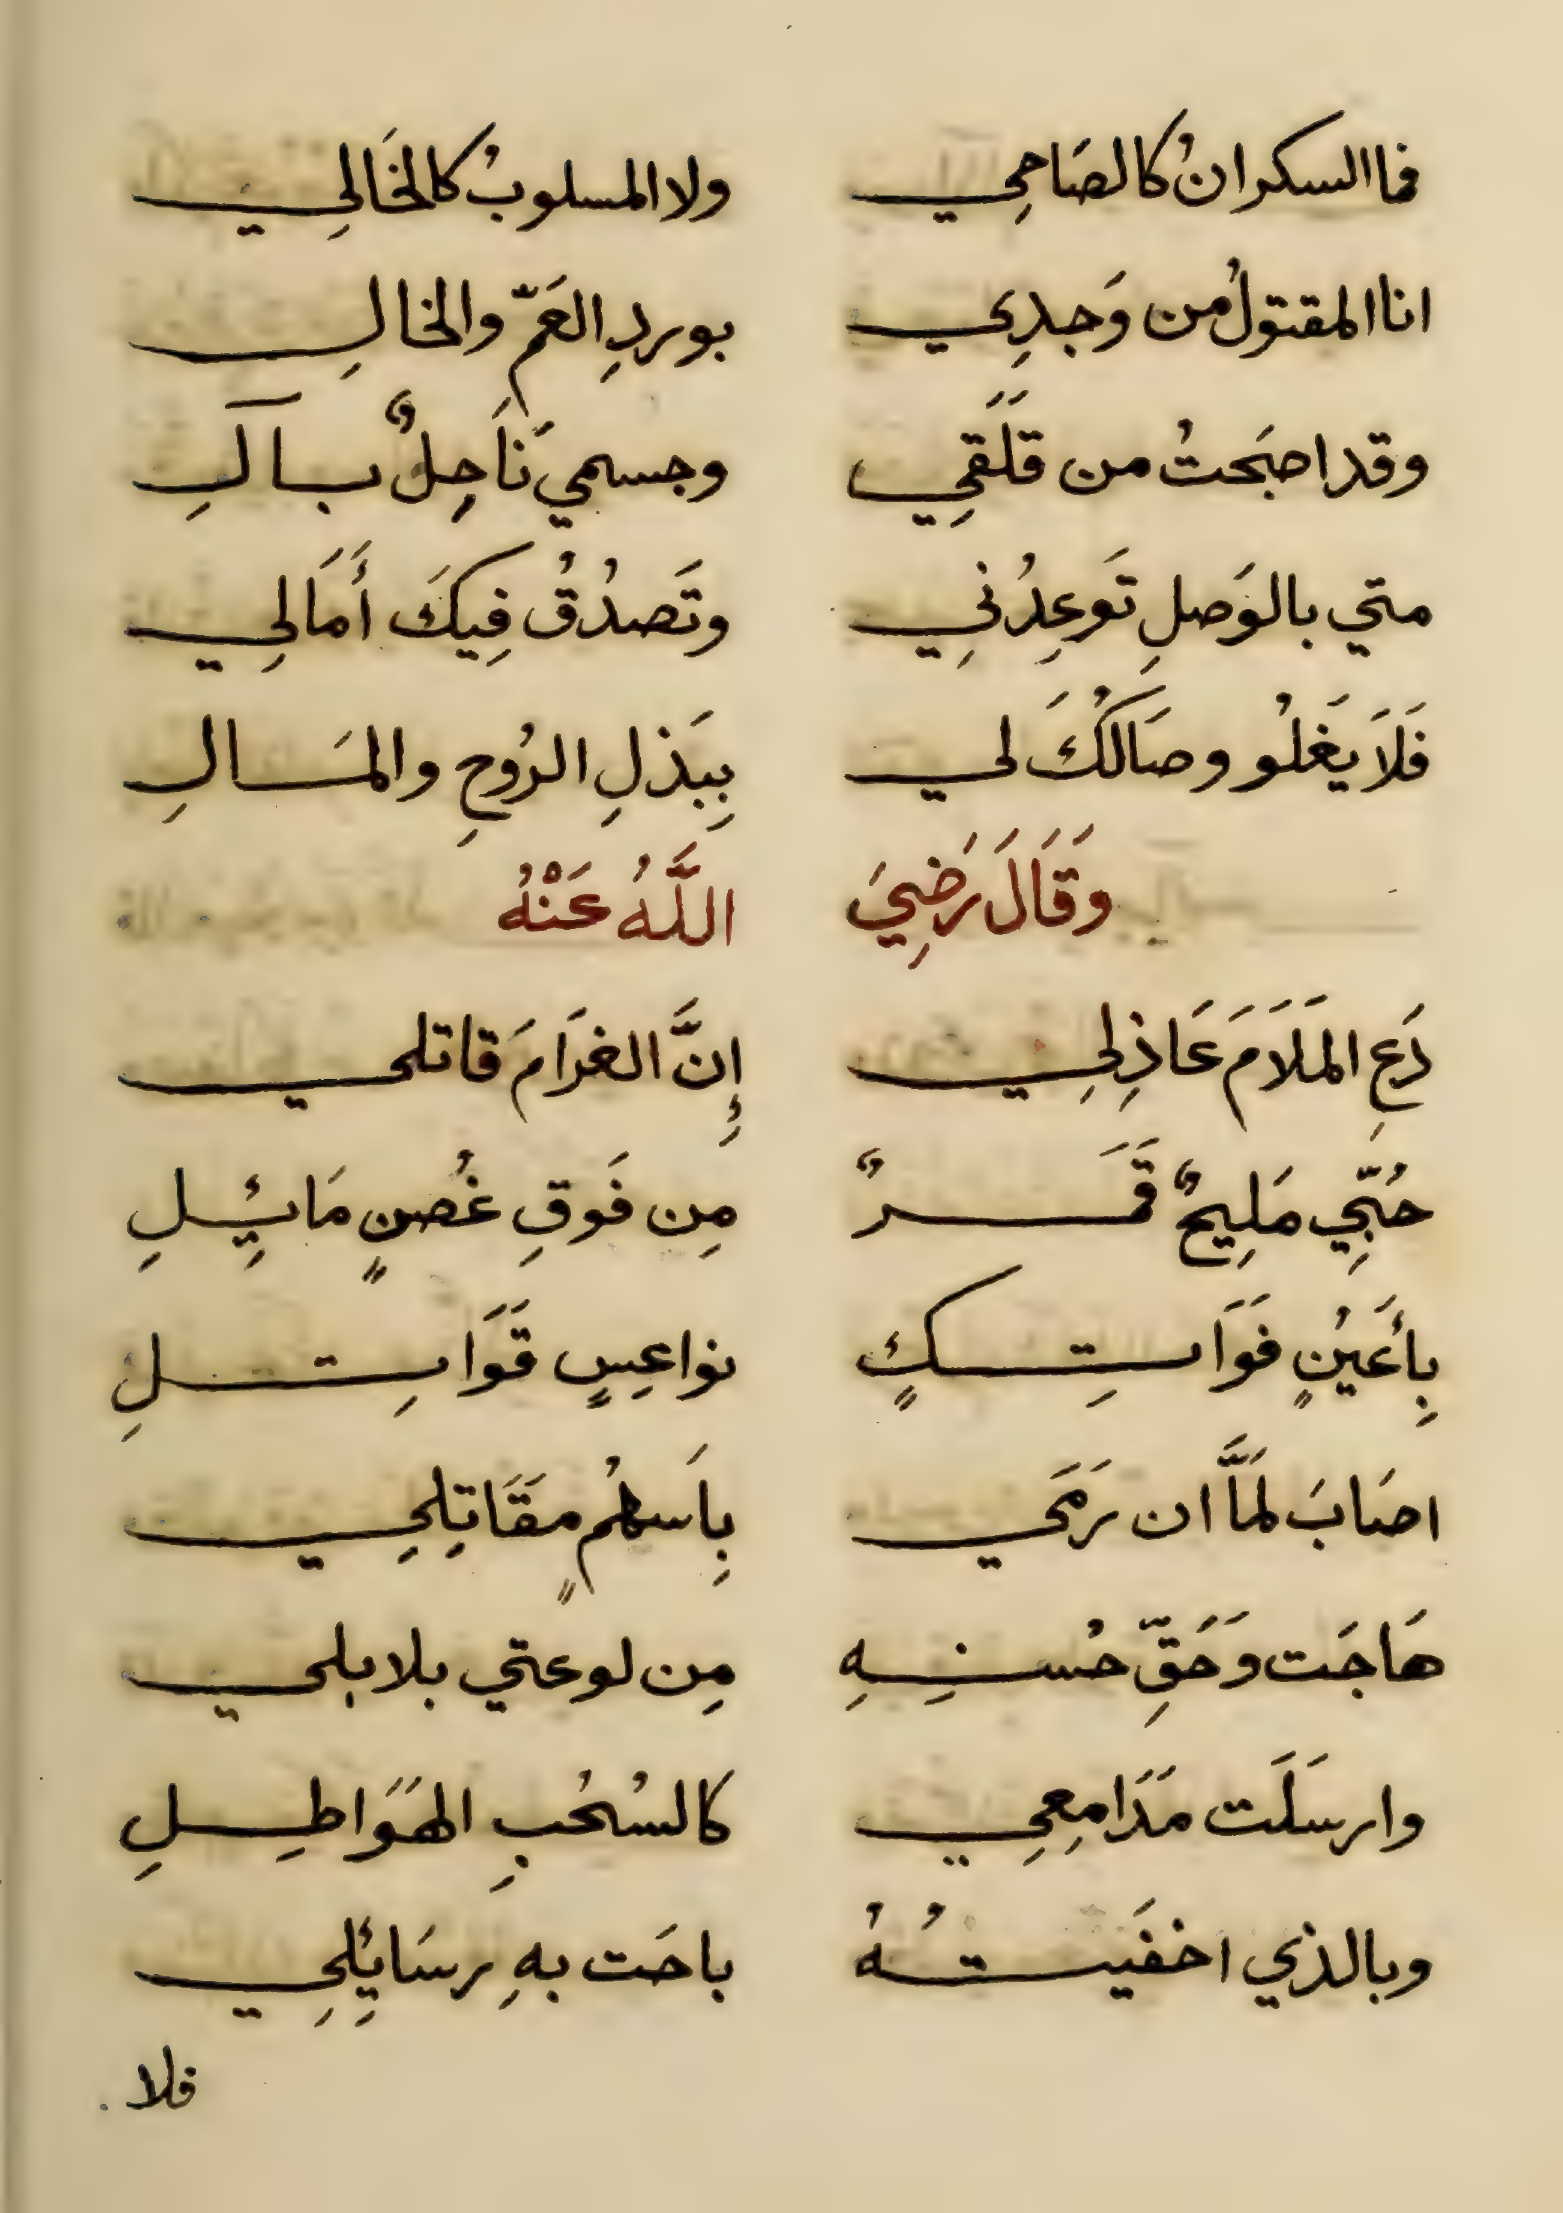 فما السكرانُ كالصَاحِي ولا المسلوبُ كالخَالِي
انا المقتولُ من وَجدِي بوردِ العَمّ والخالِ
وقد اصبَحتُ من قَلَقِي وجسمي نَاحِلٌ بآلِ
متي بالوَصلِ تَوعِدُنِي وتَصدُقُ فِيكَ أَمَالِي
فَلَا يَغلُو وصَالُكَ لي بِبَذلِ الرُوحِ والمَالِ
وَقَالَ رَضِيَ اللَّهُ عَنْهُ
دَعِ المَلَامَ عَاذِلِي إِنَّ الغرَامَ قاتلي
حُبّي مَلِيحٌ قَمَرٌ مِن فَوقِ غُصنٍ مَائِلِ
بِأَعيُنٍ فَوَاتِكٍ نواعِسٍ قَوَاتِلِ
اصَابَ لَمَّا ان رَمَي بِاَسهُمٍ مَقَاتِلِي
هَاجَت وَحَقِّ حُسنِهِ مِن لوعتي بلابلي
وارسَلَت مَدَامِعِي كالسُحُبِ الهَوَاطِلِ
وبالذي اخفَيتُهُ باحَت بهِ رسَائِلِي
فلا